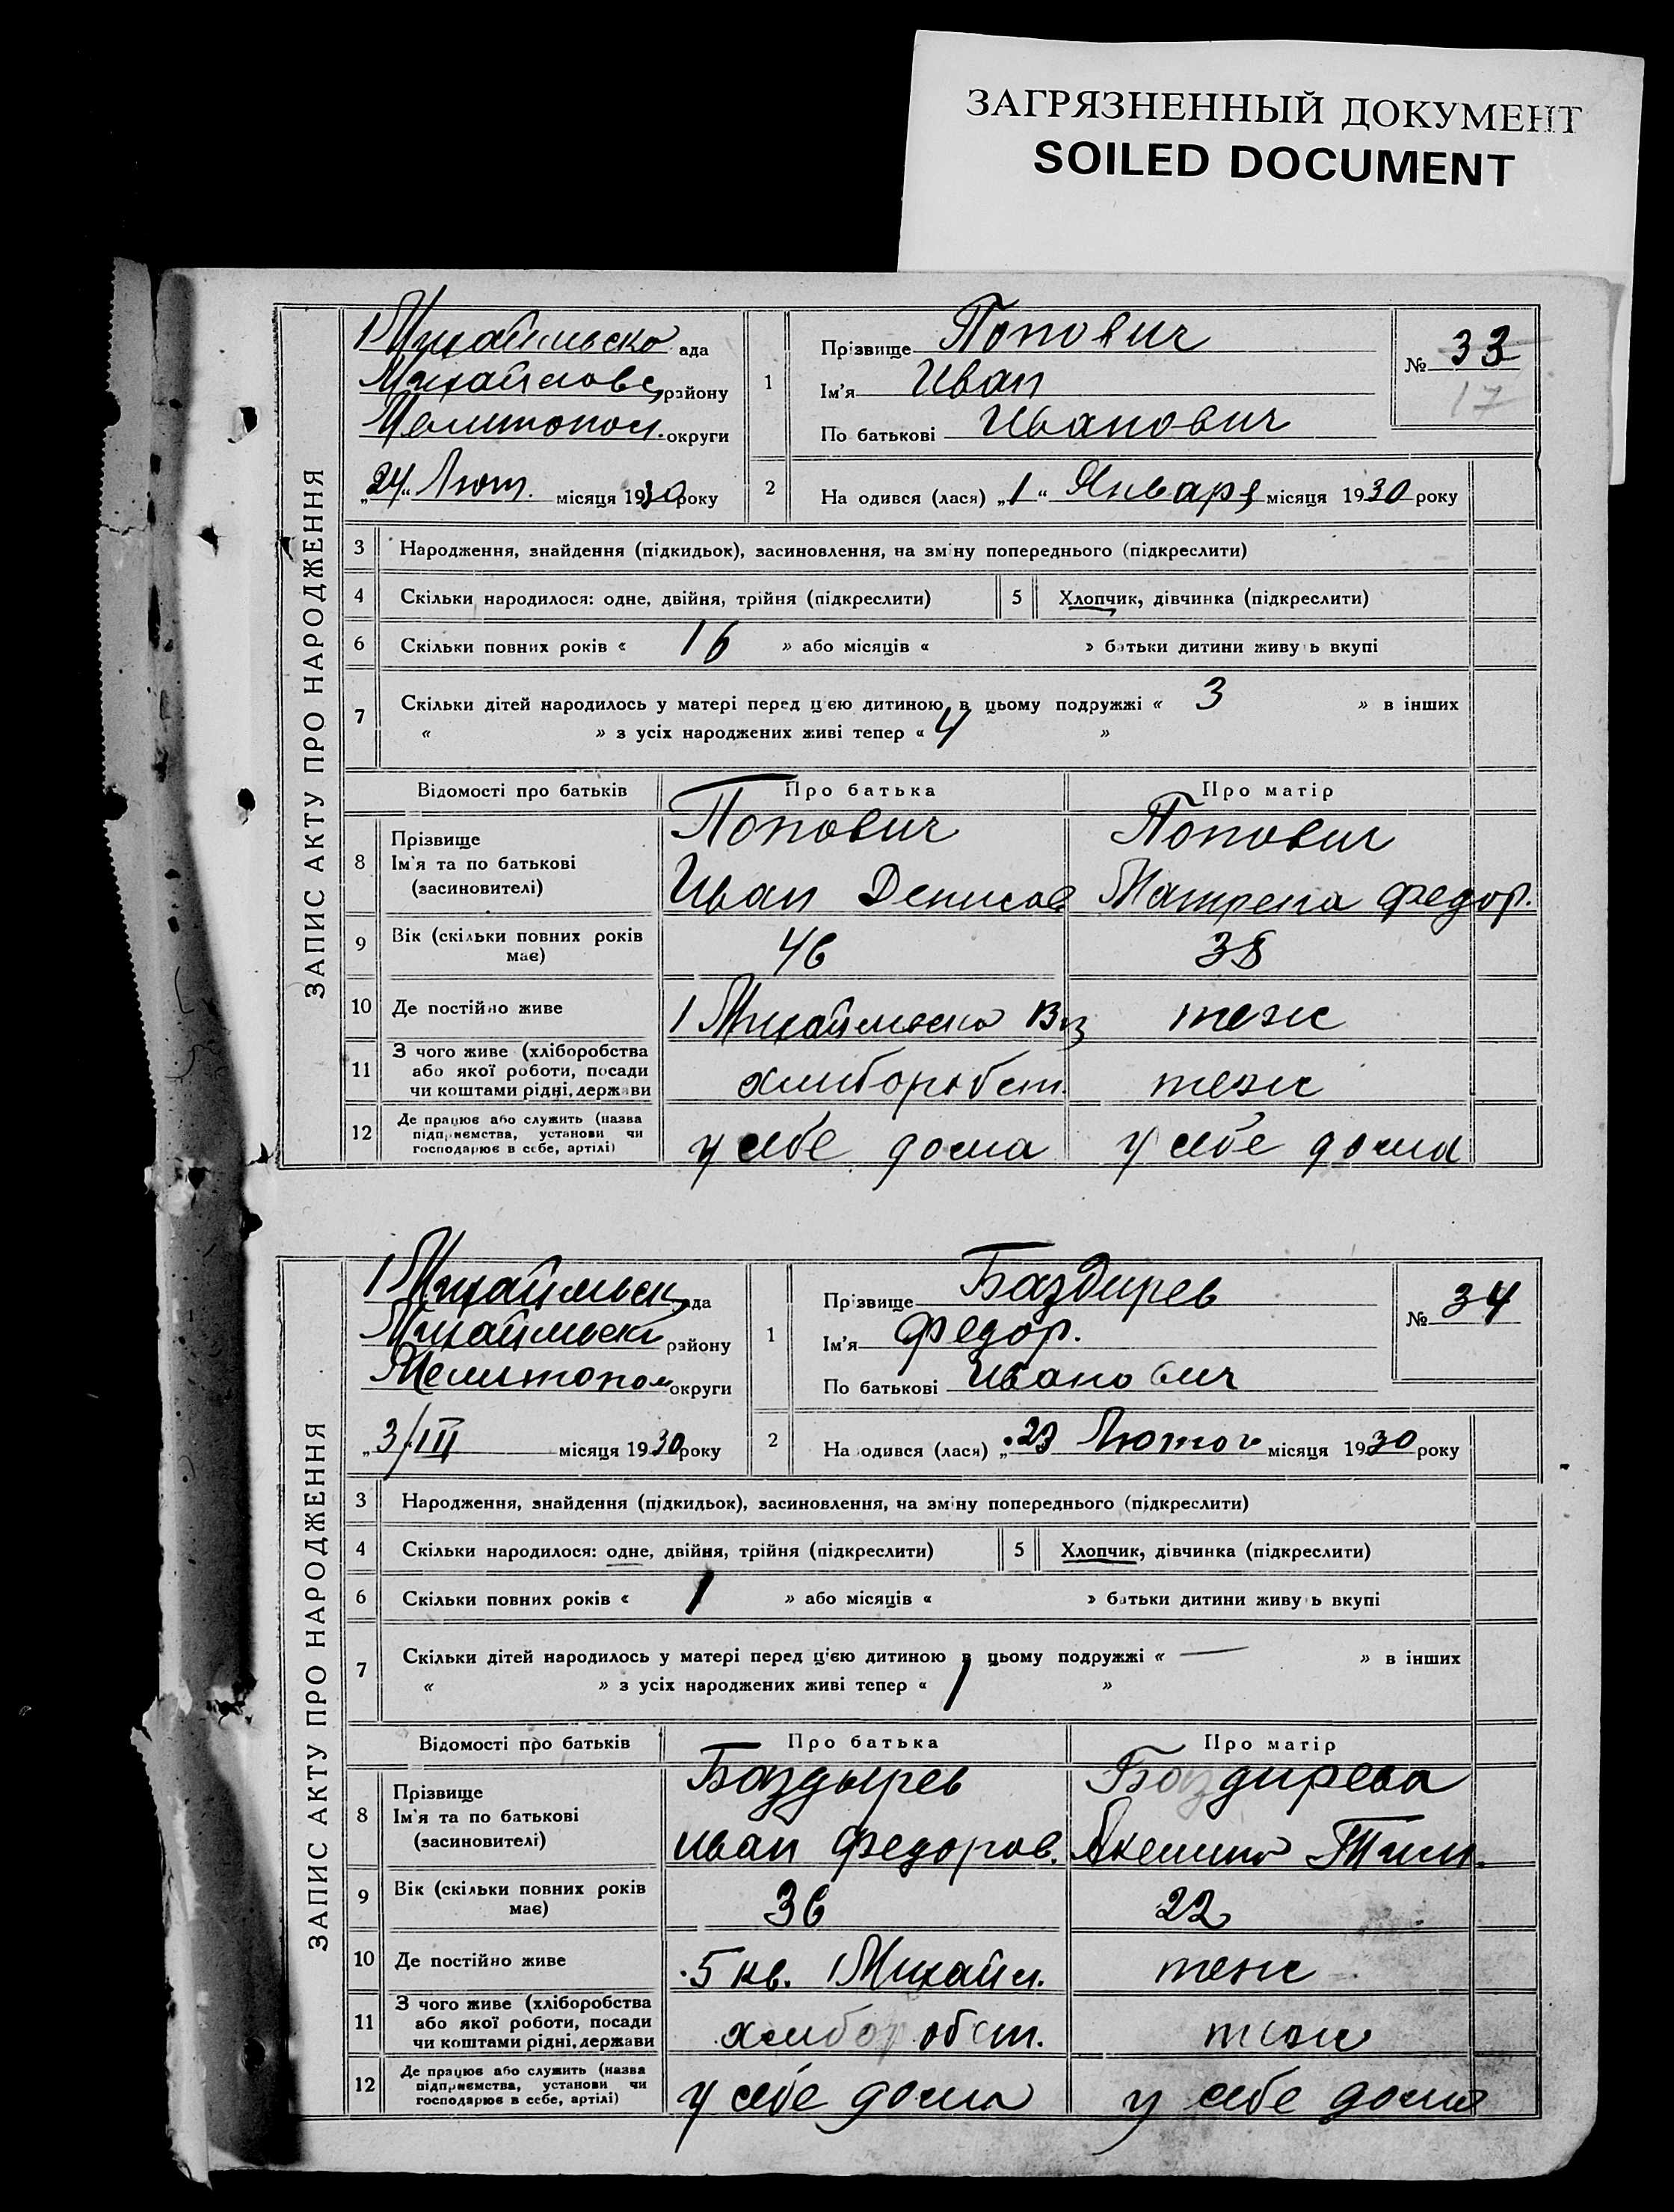 ЗАГРЯЗНЕННЫЙ ДОКУМЕНТ
SOILED DOCUMENT
ЗАПИС АКТУ ПРО НАРОДЖЕННЯ
1 Михайлівсько ада
Михайловс району
Мелитопол. округи
„24“ Лют. місяця 1930 року
1 Прізвище Попович
Ім'я Иван
По батькові Иванович
№ 33
17
2 На одився (лася) „1“ Января місяця 1930 року
3 Народження, знайдення (підкидьок), засиновлення, на зміну попереднього (підкреслити)
4 Скільки народилося: одне, двійня, трійня (підкреслити) 5 Хлопчик, дівчинка (підкреслити)
6 Скільки повних років « 16 » або місяців « » батьки дитини живуть вкупі
7 Скільки дітей народилось у матері перед цією дитиною в цьому подружжі « 3 » в інших
« » з усіх народжених живі тепер « 4 »
Відомості про батьків Про батька Про матір
8 Прізвище
Ім'я та по батькові
(засиновителі)
Попович
Иван Денисов
Попович
Матрена Федор.
9 Вік (скільки повних років
має)
46 38
10 Де постійно живе 1 Михайлівсько теж
11 З чого живе (хліборобства
або якої роботи, посади
чи коштами рідні, держави
хлиборобст. теж
12 Де працює або служить (назва
підприємства, установи чи
господарює в себе, артілі)
у себе дома у себе дома
ЗАПИС АКТУ ПРО НАРОДЖЕННЯ
1 Михайлівськ ада
Михайлівськ району
Мелитопол округи
„3/III місяця 1930 року
1 Прізвище Баздирев
Ім'я Федор.
По батькові Иванович
№ 34
2 На одився (лася) „23 Лютого місяця 1930 року
3 Народження, знайдення (підкидьок), засиновлення, на зміну попереднього (підкреслити)
4 Скільки народилося: одне, двійня, трійня (підкреслити) 5 Хлопчик, дівчинка (підкреслити)
6 Скільки повних років « 1 » або місяців « » батьки дитини живуть вкупі
7 Скільки дітей народилось у матері перед цією дитиною в цьому подружжі « — » в інших
« » з усіх народжених живі тепер « 1 »
Відомості про батьків Про батька Про матір
8 Прізвище
Ім'я та по батькові
(засиновителі)
Баздырев
Иван Федоров.
Баздирева
Аксиния Тим.
9 Вік (скільки повних років
має)
36 22
10 Де постійно живе 5 кв. 1 Михайл. теж
11 З чого живе (хліборобства
або якої роботи, посади
чи коштами рідні, держави
хлиборобст. теж
12 Де працює або служить (назва
підприємства, установи чи
господарює в себе, артілі)
у себе дома у себе дома